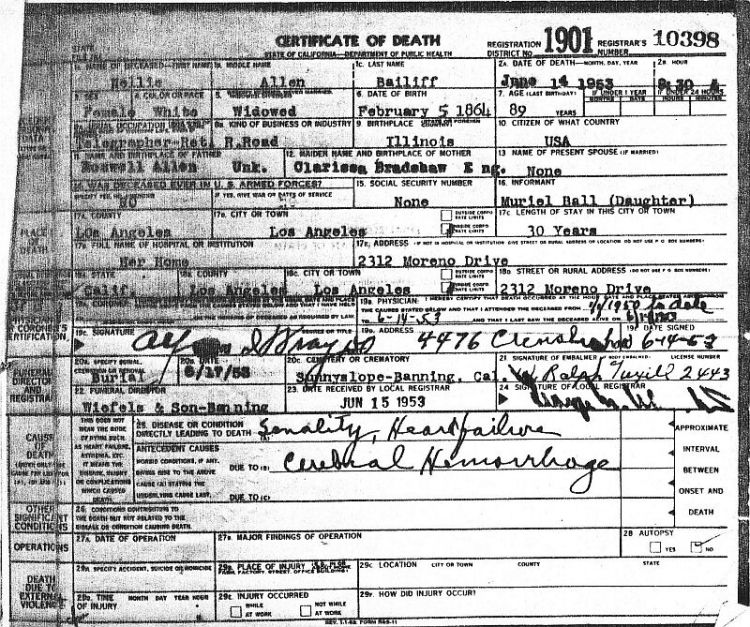 STATE
CERTIFICATE OF DEATH
STATE OF CALIFORNIA—DEPARTMENT OF PUBLIC HEALTH
REGISTRATION DISTRICT NO. 1901 REGISTRAR'S NUMBER 10398
1A NAME OF DECEASED—FIRST NAME 1B MIDDLE NAME 1C. LAST NAME 2A. DATE OF DEATH—MONTH, DAY, YEAR 2B HOUR
Nellie Allen Bailiff June 14 1953
3 SEX 4 COLOR OR RACE 6 DATE OF BIRTH 7. AGE (LAST BIRTHDAY) IF UNDER 1 YEAR IF UNDER 24 HOURS
Female White Widowed February 5 1864 89 YEARS
8B. KIND OF BUSINESS OR INDUSTRY 9 BIRTHPLACE 10 CITIZEN OF WHAT COUNTRY
Telegrapher-Ret. R.Road Illinois USA
11 NAME AND BIRTHPLACE OF FATHER 12. MAIDEN NAME AND BIRTHPLACE OF MOTHER 13 NAME OF PRESENT SPOUSE (IF MARRIED)
Allen Unk. Clarissa Bradshaw Eng. None
14 WAS DECEASED EVER IN U. S. ARMED FORCES? 15. SOCIAL SECURITY NUMBER 16 INFORMANT
IF YES, GIVE WAR OR DATES OF SERVICE
NO None Muriel Ball (Daughter)
PLACE OF DEATH
17A. COUNTY 17B. CITY OR TOWN OUTSIDE CORPORATE LIMITS 17C LENGTH OF STAY IN THIS CITY OR TOWN
Los Angeles Los Angeles INSIDE CORPORATE LIMITS 30 Years
17D. FULL NAME OF HOSPITAL OR INSTITUTION 17E. ADDRESS
Her Home 2312 Moreno Drive
18A. STATE 18B. COUNTY 18C. CITY OR TOWN 18D STREET OR RURAL ADDRESS
Calif. Los Angeles Los Angeles 2312 Moreno Drive
19B PHYSICIAN: I HEREBY CERTIFY THAT DEATH OCCURRED AT THE HOUR DATE AND PLACE STATED ABOVE FROM
THE CAUSES STATED BELOW AND THAT I ATTENDED THE DECEASED FROM 1950 to date
6-14-53 AND THAT I LAST SAW THE DECEASED ALIVE ON
19C. SIGNATURE DEGREE OR TITLE 19D. ADDRESS 19E DATE SIGNED
4476 Crenshaw 6-14-53
FUNERAL DIRECTOR AND REGISTRAR
20A. SPECIFY BURIAL, CREMATION OR REMOVAL 20B. DATE 20C. CEMETERY OR CREMATORY 21 SIGNATURE OF EMBALMER LICENSE NUMBER
Burial 6/17/53 Sunnyslope-Banning, Cal. Ralph Tuxill 2443
22. FUNERAL DIRECTOR 23. DATE RECEIVED BY LOCAL REGISTRAR 24. SIGNATURE OF LOCAL REGISTRAR
Wiefels & Son-Banning JUN 15 1953
CAUSE OF DEATH
25. DISEASE OR CONDITION
DIRECTLY LEADING TO DEATH Senality, Heartfailure
ANTECEDENT CAUSES
DUE TO (B) Cerebral Hemorrhage
DUE TO (C)
APPROXIMATE INTERVAL BETWEEN ONSET AND DEATH
OTHER SIGNIFICANT CONDITIONS
26. CONDITIONS CONTRIBUTING TO THE DEATH BUT NOT RELATED TO THE DISEASE OR CONDITION CAUSING DEATH
OPERATIONS
27A. DATE OF OPERATION 27B. MAJOR FINDINGS OF OPERATION 28 AUTOPSY
YES NO
DEATH DUE TO EXTERNAL VIOLENCE
29A SPECIFY ACCIDENT, SUICIDE OR HOMICIDE 29B. PLACE OF INJURY 29C LOCATION CITY OR TOWN COUNTY STATE
29D. TIME OF INJURY MONTH DAY YEAR HOUR 29E. INJURY OCCURRED 29F. HOW DID INJURY OCCUR?
WHILE AT WORK NOT WHILE AT WORK